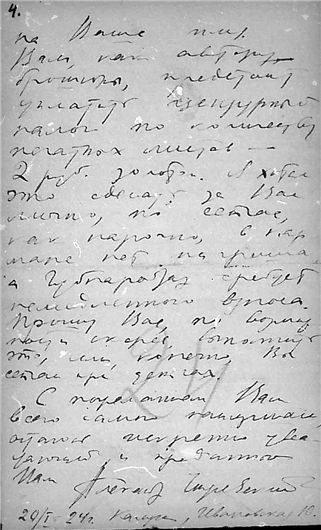 4.
на Ваше имя.
Вам, как автору
брошюры, предстоит
уплатить цензурный
налог по количеству
печатных листов —
2 руб. золотом. Я хотел
это сделать за Вас
лично, но сейчас,
как нарочно, в кар
мане нет ни гроша
а Губнаробраз требует
немедленного взноса.
Прошу Вас, по
это, если, конечно, Вы
сейчас при деньгах.
С пожеланием Вам
всего самого наилучшаго,
остаюсь искренно ува
жающий и преданный
Вам
20/I - 24 г. Калуга,